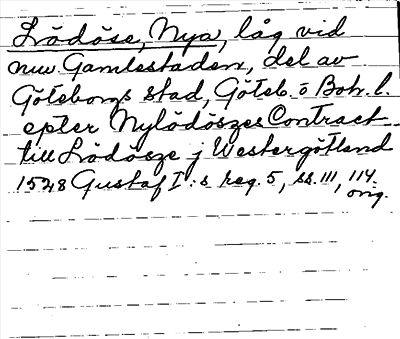 Lödöse, Nya, låg vid
nuv. Gamlestaden, del av
Göteborgs stad, Göteb. o Boh. l.
epter Nylödöszes Contract
till Lödösze j Westergötland
1528 Gustaf I:s reg. 5, ss. 111, 114.
orig.